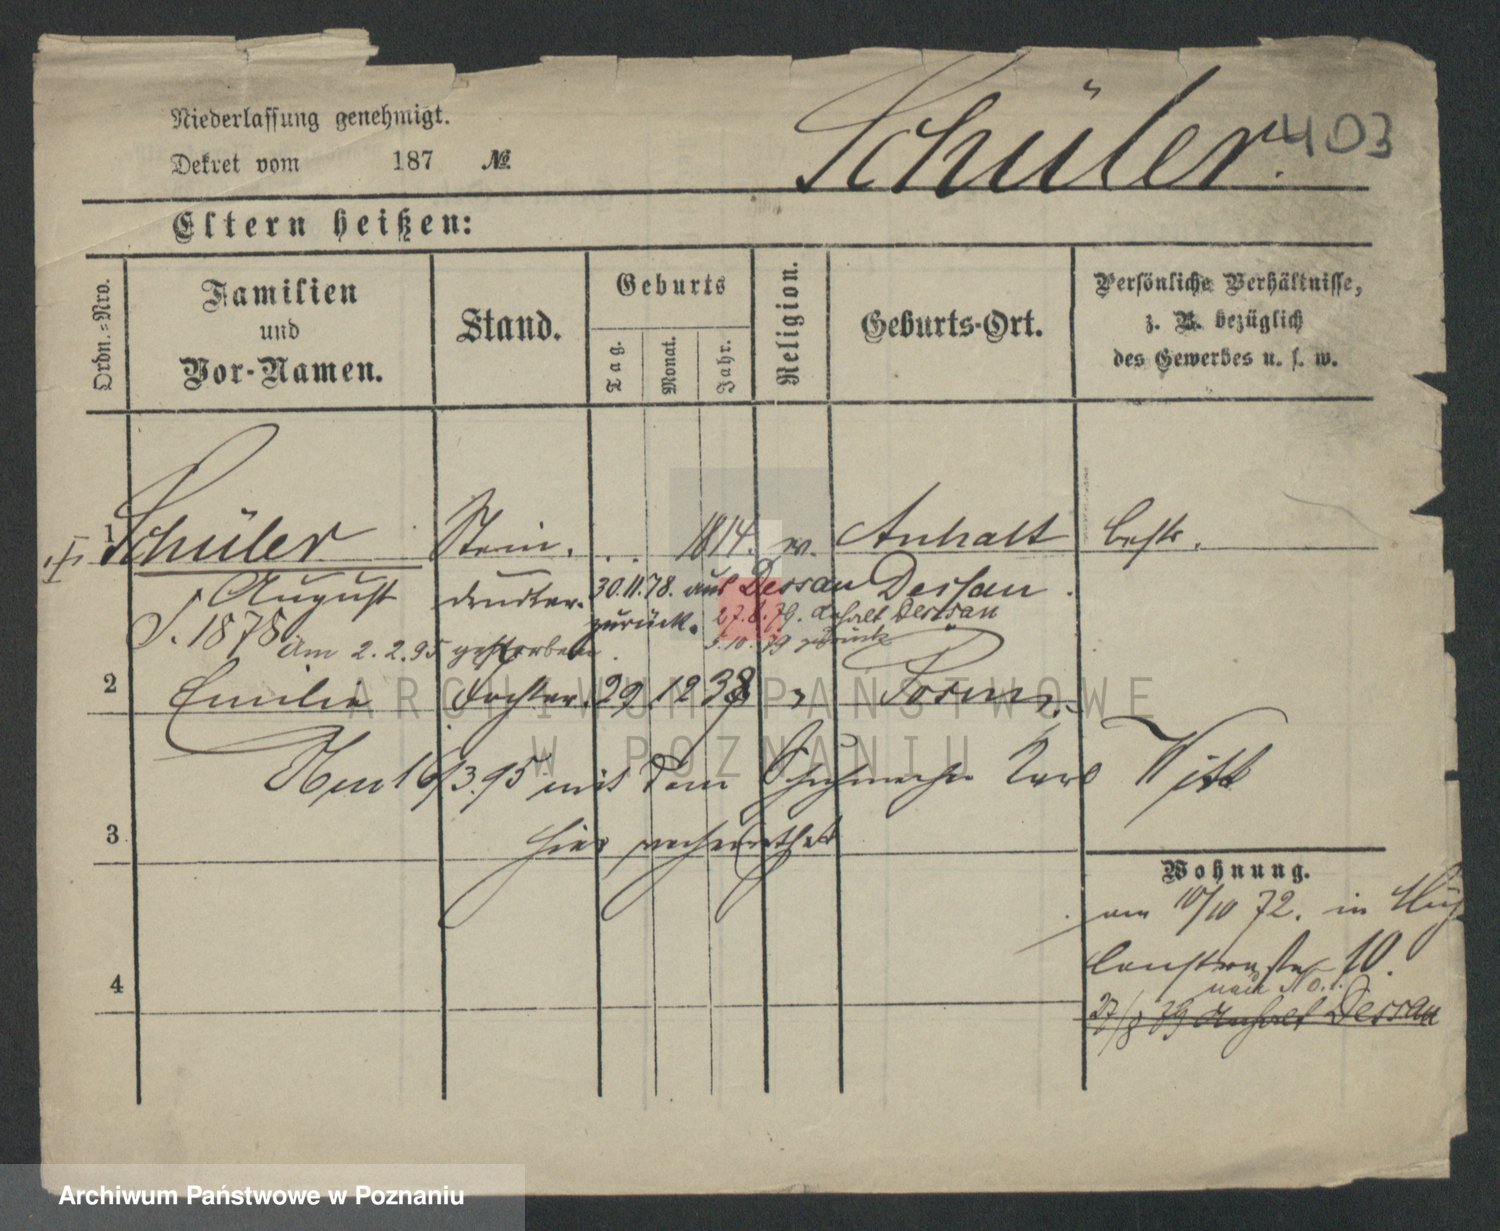 Niederlassung genehmigt.
Dekret vom 187 №
Schüler. 403
Eltern heißen:
Ordn.-Nro.
Familien und Vor-Namen.
Stand.
Geburts
Tag.
Monat.
Jahr.
Religion.
Geburts-Ort.
Persönliche Verhältnisse,
z. B. bezüglich
des Gewerbes u. s. w.
1 Schüler Stein. 1814. ev. Anhalt
August drucker. 30.11.78. aus Dessau Dessau.
zurück. 27.8.79. Anhalt Dessau
S. 1878 am 2.2.95 gestorben. 5.10.79 zurück
2 Emilie Tochter. 29 12 38 " Posen.
16/3.95 mit dem Schuhmacher Karl Witt
3 hier verheirathet
Wohnung.
am 10/10 72. in
10.
nach No.
4 27/8 79 Anhalt Dessau
ARCHIWUM PAŃSTWOWE
W POZNANIU
Archiwum Państwowe w Poznaniu